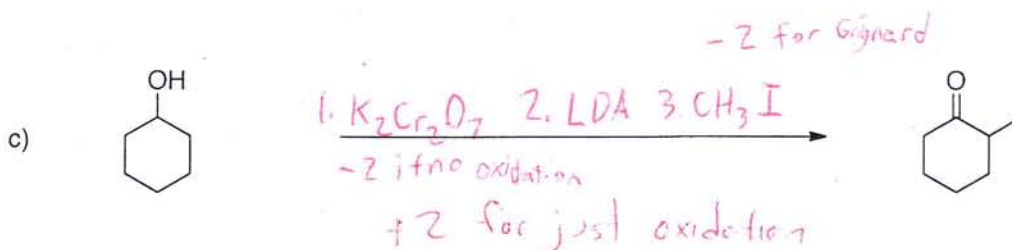 - 2 for Grignard
OH
O
c)
1. K₂Cr₂O₇ 2. LDA 3. CH₃I
- 2 if no oxidation
+2 for just oxidation